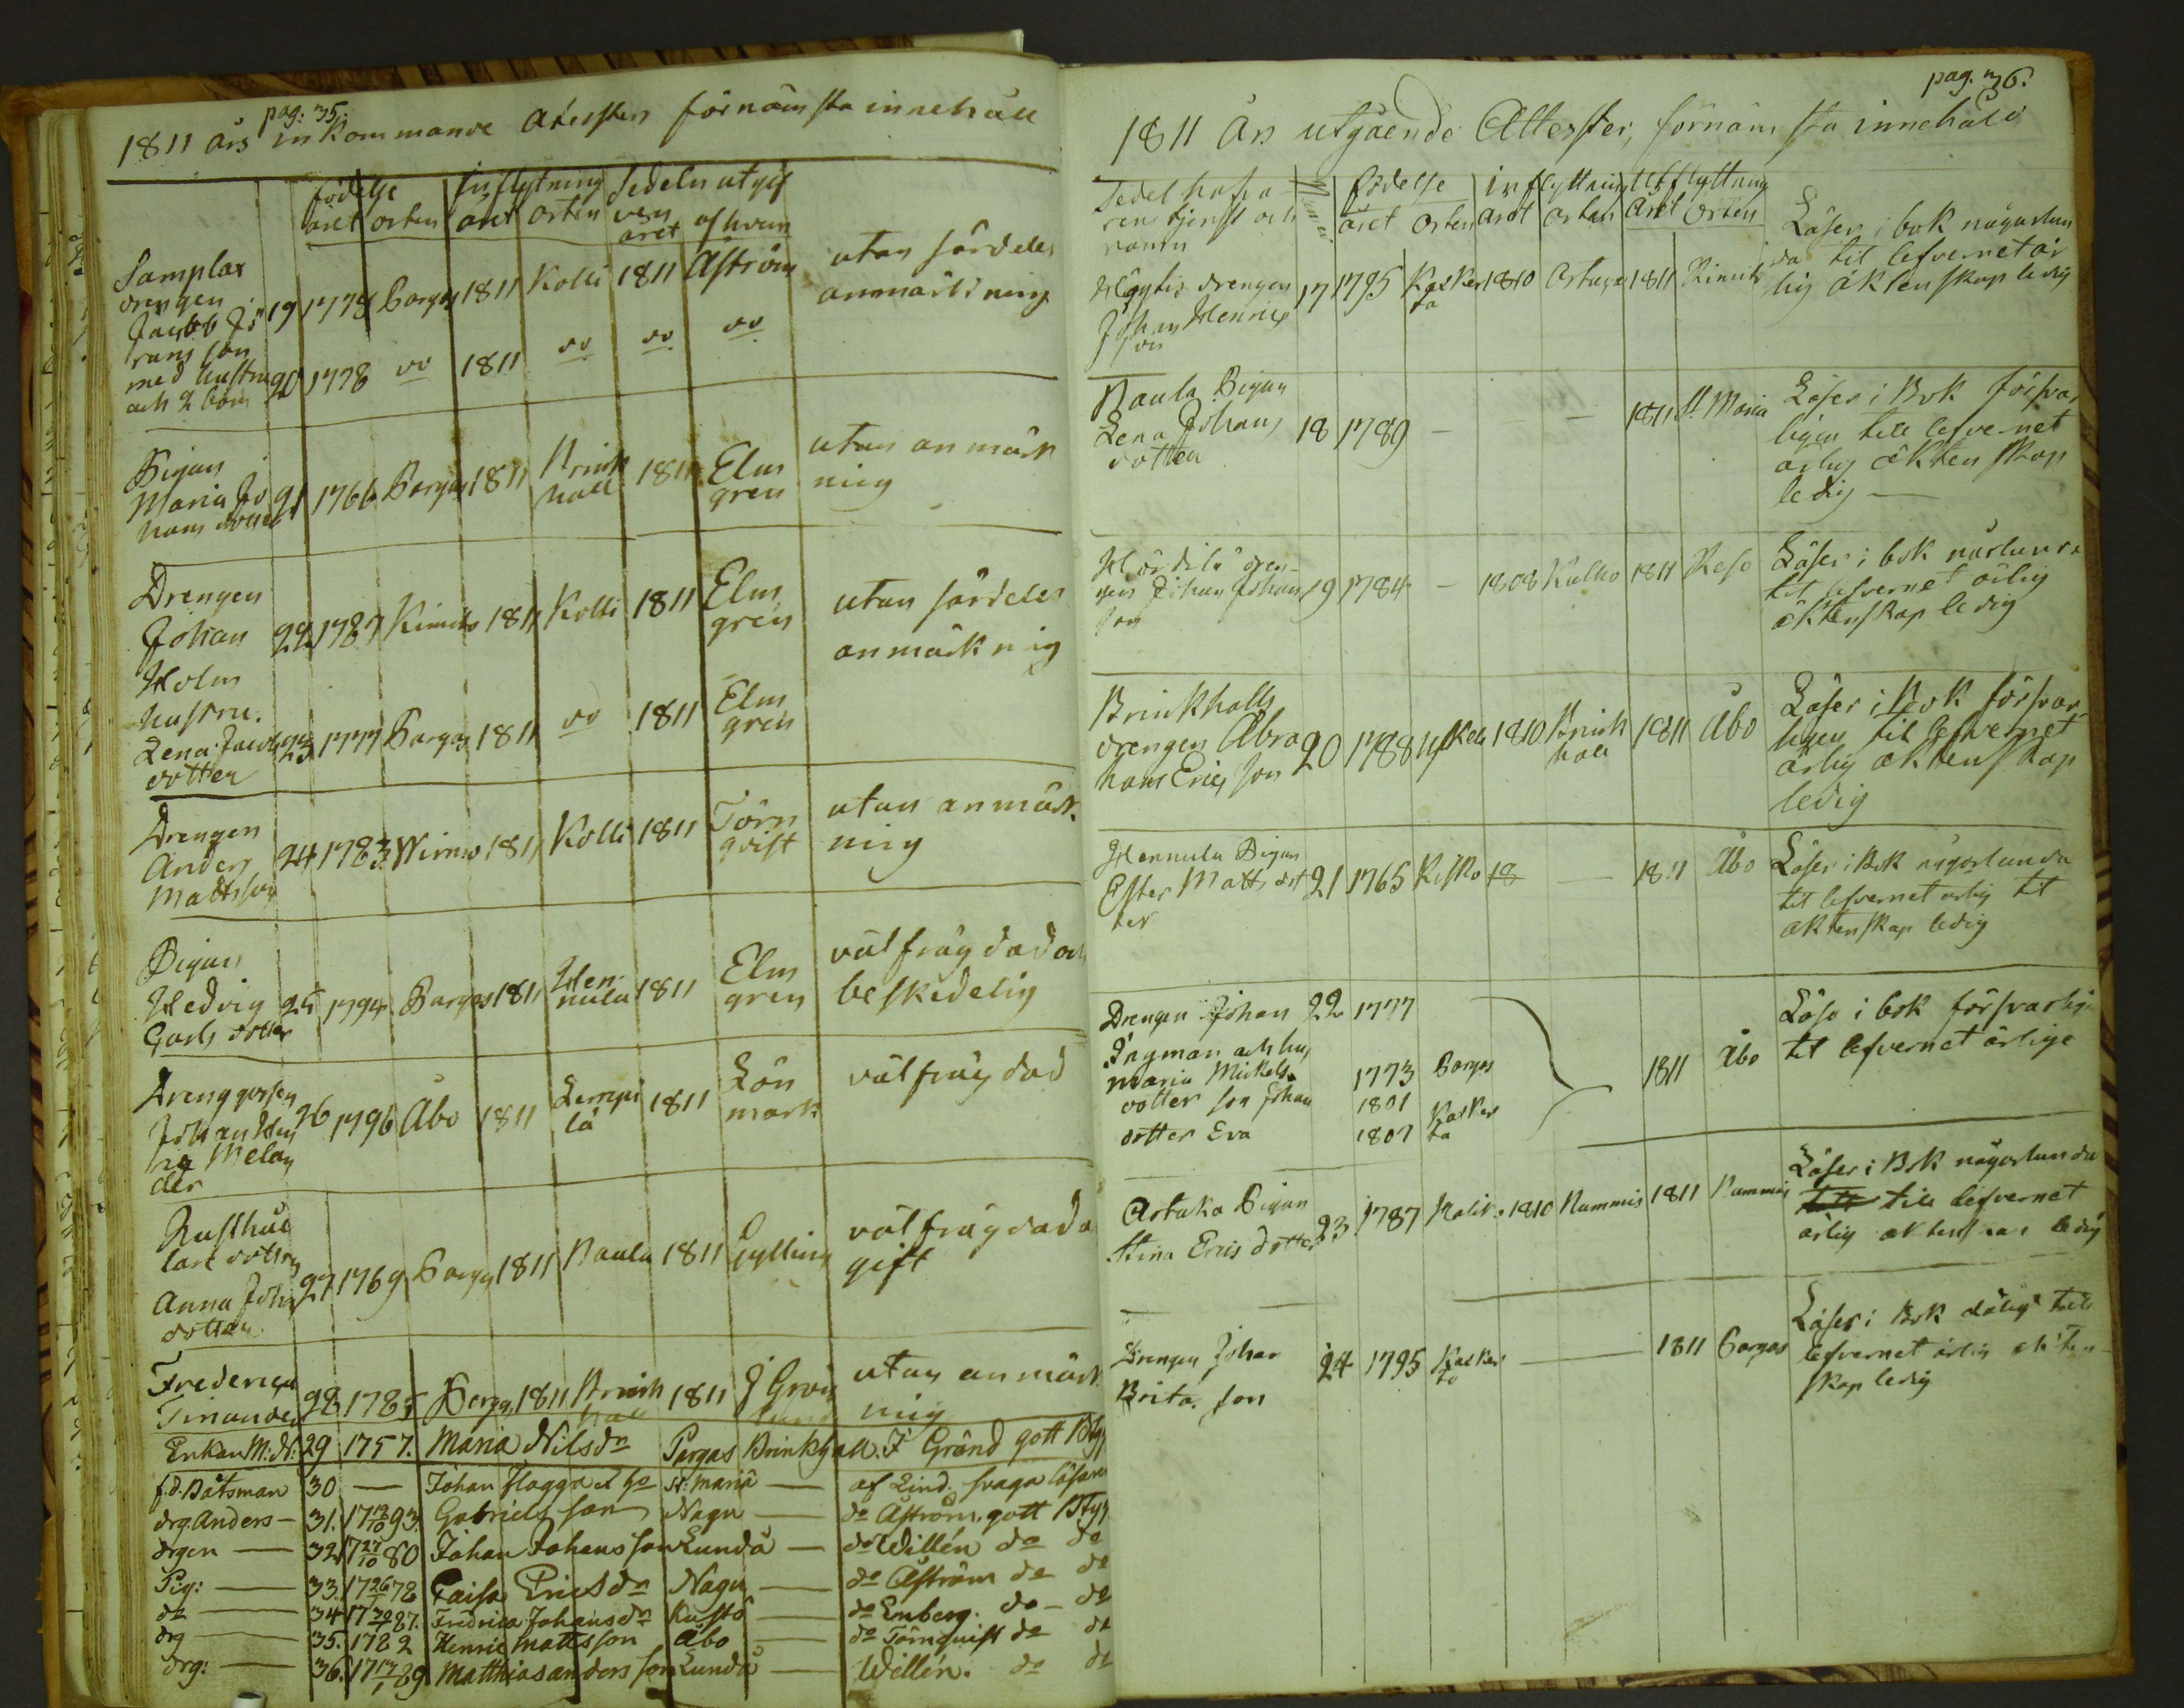 pag: 35.
1811 års inkommande Attester förnämsta innehåll
födelse inflytning Sedeln utgif
året orten året orten ven året af hvem
Samplax
drengen
Jacob Jö
rans son 19 1778 Pargas 1811 Kolli 1811 Åström utan särdeles
anmärkning
med hustru
och 2 barn 20 1778 do 1811 do do do
Pigan
Maria Jo
hans dotter 21 1766 Pargas 1811 Brink
hall 1811 Elm
gren utan anmärk
ning
Drengen
Johan
Holm 22 1787 Kimito 1811 Kolli 1811 Elm
gren utan särdeles
anmärkning
hustru.
Lena Jacobs
dotter 23 1777 Pargas 1811 do 1811 Elm
gren
Drengen
Anders
Mattsson 24 1783 Wirmo 1811 Kolli 1811 Törn
qvist utan anmärk
ning
Pigan
Hedvig
Carls dotter 25 1794 Pargas 1811 Hen
nula 1811 Elm
gren välfrägdad och
beskedelig
Drenggossen
Johan Hen
ric Melan
der 26 1796 Åbo 1811 Lempi
lä 1811 Lön
mark välfrägdad
Rusthål
lare dottren
Anna Johans
dotter 27 1769 Pargas 1811 Naula 1811 Gylling välfrägdad o
gift
Frederica
Tinander 28 1785 Pargas 1811 Brink
hall 1811 J Grön
lund utan anmärk
ning
Enkan M: N: 29 1757. Maria Nilsdr Pargas Brinkhall. J Gränd gott
f.d. Båtsman 30 — Johan Flagga St: Maria — af Lind. svaga läsare
drg. Anders — 31. 17 12/10 93. Gabriels son Nagu — do Åström. gott
drgen — 32 17 27/10 80 Johan Johans son Lundå — do Willén do do
Pig: — 33. 17 26/1 78 Caisa Ericsdr Nagu — do Åström do do
do — 34 17 30/ 87. Fredrica Johansdr Kustö — do Enberg. do — do
drg — 35. 1782 Henric Mattsson Åbo — do Törnquist do do
drg: — 36. 17 17/1 89 Matthias anders son Lundå — Willén. do do
pag. 36.
1811 års utgående Attester, förnämsta innehåld
Sedel hafva
rens tjenst och
namn födelse inflyttning utflyttning
året orten året orten året orten
Höytis drengen
Johan Henrics
son 17 1795 Kasker
ta 1810 Artuga 1811 Kimito Läser i bok någorlun
da til lefvernet är
lig äktenskap ledig
Naula Pigan
Lena Johans
dotter 18 1789 — — 1811 St Maria Läser i Bok försvar
ligen till lefvernet
ärlig äktenskap
ledig —
Härdilä dren
gen Johan Johans
son 19 1784 — 1808 Kulho 1811 Reso Läser i bok nårlunda
til lefvernet ärlig
äktenskap ledig
Brinkhalls
drengen Abra
hams Erics son 20 1788 Uskela 1810 Brink
hall 1811 Åbo Läser i Bok försvar
ligen til lefvernet
ärlig äktenskap
ledig
Hennula Pigan
Ester Matts dot
ter 21 1765 Kisko 18 — 1811 Åbo Läser i Bok någorlunda
til lefvernet ärlig til
äktenskap ledig
Drengen Johan 22 1777
Ingman och hus
Maria Mickels
dotter 1773 Pargas
son Johan 1801
dotter Eva 1807 Kasker
ta 1811 Åbo Läse i bok försvarligen
til lefvernet ärlige
Artuka Pigan
Stina Erics dotter 23 1787 Maliko 1810 Nummis 1811 Nummis Läser i Bok någorlunda
till lefvernet
ärlig äktenskap ledig
Drengen Johan
Brita. son 24 1795 Kasker
ta — 1811 Pargas Läser i Bok dåligt till
lefvernet ärlig äkten
skap ledig